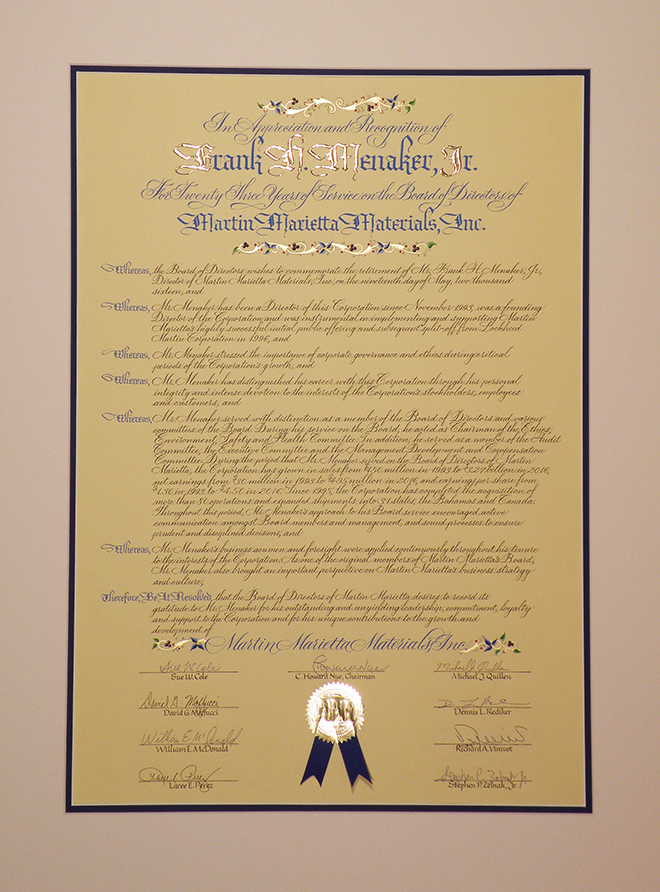 In Appreciation and Recognition of
Frank H. Menaker, Jr.
For Twenty Three Years of Service on the Board of Directors of
Martin Marietta Materials, Inc.
Whereas, the Board of Directors wishes to commemorate the retirement of Mr. Frank H. Menaker, Jr.,
Director of Martin Marietta Materials, Inc., on the nineteenth day of May, two thousand
sixteen, and
Whereas, Mr. Menaker has been a Director of this Corporation since November 1993, was a founding
Director of the Corporation and was instrumental in implementing and supporting Martin
Marietta's highly successful initial public offering and subsequent split-off from Lockheed
Martin Corporation in 1996, and
Whereas, Mr. Menaker stressed the importance of corporate governance and ethics during critical
periods of the Corporation's growth, and
Whereas, Mr. Menaker has distinguished his career with this Corporation through his personal
integrity and intense devotion to the interests of the Corporation's stockholders, employees
and customers, and
Whereas, Mr. Menaker served with distinction as a member of the Board of Directors and various
committees of the Board. During his service on the Board, he acted as Chairman of the Ethics,
Environment, Safety and Health Committee. In addition, he served as a member of the Audit
Committee, the Executive Committee and the Management Development and Compensation
Committee. During the period that Mr. Menaker served on the Board of Directors of Martin
Marietta, the Corporation has grown in sales from $450 million in 1993 to $3.27 billion in 2016,
net earnings from $30 million in 1993 to million in 2016, and earnings per share from
$1.30 in 1993 to $4.50 in 2016. Since 1995, the Corporation has completed the acquisition of
more than 80 operations and expanded shipments into 31 states, the Bahamas and Canada.
Throughout this period, Mr. Menaker's approach to his Board service encouraged active
communication amongst Board members and management, and sound processes to ensure
prudent and disciplined decisions; and
Whereas, Mr. Menaker's business acumen and foresight were applied continuously throughout his tenure
to the interests of the Corporation. As one of the original members of Martin Marietta's Board,
Mr. Menaker also brought an important perspective on Martin Marietta's business strategy
and culture;
Therefore, Be It Resolved, that the Board of Directors of Martin Marietta desires to record its
gratitude to Mr. Menaker for his outstanding and unyielding leadership, commitment, loyalty
and support to the Corporation and for his unique contributions to the growth and
development of
Martin Marietta Materials, Inc.
Sue W. Cole
C. Howard Nye, Chairman
Michael J. Quillen
David G. Maffucci
Dennis L. Rediker
William E. McDonald
Richard A. Vinroot
Laree E. Perez
Stephen P. Zelnak, Jr.